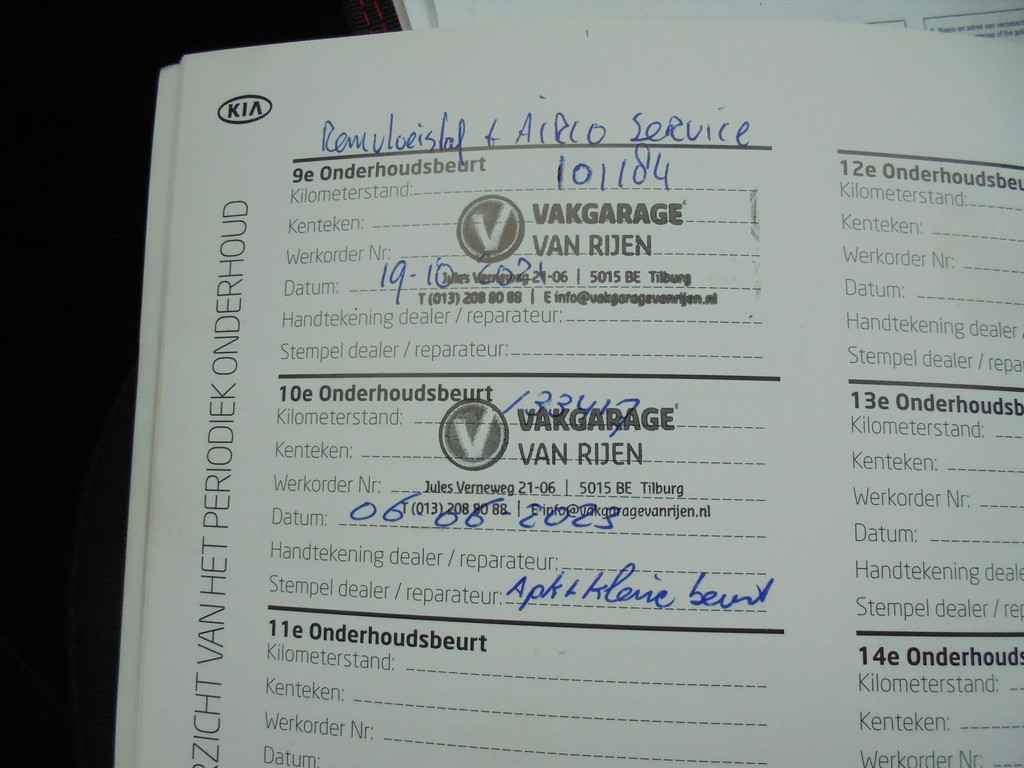 KIA
OVERZICHT VAN HET PERIODIEK ONDERHOUD
Remvloeistof + AIRCO SERVICE
9e Onderhoudsbeurt
Kilometerstand: 101184
Kenteken:
VAKGARAGE
VAN RIJEN
Werkorder Nr:
Jules Verneweg 21-06 | 5015 BE Tilburg
Datum: 19-10-2021
T (013) 208 80 88 | E info@vakgaragevanrijen.nl
Handtekening dealer / reparateur:
Stempel dealer / reparateur:
10e Onderhoudsbeurt
Kilometerstand: 133417
VAKGARAGE
Kenteken:
VAN RIJEN
Werkorder Nr:
Jules Verneweg 21-06 | 5015 BE Tilburg
Datum: 06-06-2023
T (013) 208 80 88 | E info@vakgaragevanrijen.nl
Handtekening dealer / reparateur:
Stempel dealer / reparateur: Apk + kleine beurt
11e Onderhoudsbeurt
Kilometerstand:
Kenteken:
Werkorder Nr:
Datum:
12e Onderhoudsbeu
Kilometerstand:
Kenteken:
Werkorder Nr:
Datum:
Handtekening dealer /
Stempel dealer / repa
13e Onderhoudsb
Kilometerstand:
Kenteken:
Werkorder Nr:
Datum:
Handtekening deale
Stempel dealer / rep
14e Onderhouds
Kilometerstand:
Kenteken:
Werkorder Nr: